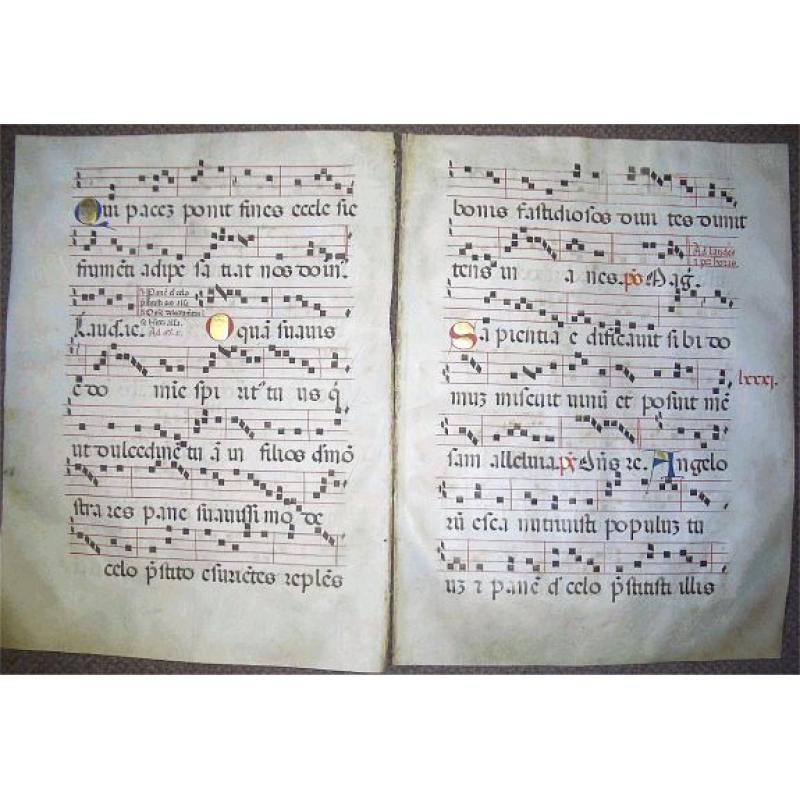 Qui pacez ponit fines eccle sie
frumēti adipe sa tiat nos doīn⁹.
Laud. ie. O quā suavis
e do mīe spi rit⁹ tu us q̄
ut dulcedinē tu ā in filios dīmō
stra res pane suavissi mo de
celo p̄stito esuriētes replēs
bonis fastidiosos divi tes dimit
tens in a nes. ps̄ Mag̃.
Ad laudes
⁊ p̱ horas.
Sa pientia e dificavit si bi do
muz miscuit vinū et posuit mē
lxxxj.
sam alleluia. ps̄ Dn̄s re. Angelo
rū esca nutrivisti populuz tu
uz ⁊ panē d̄ celo p̄stitisti illis